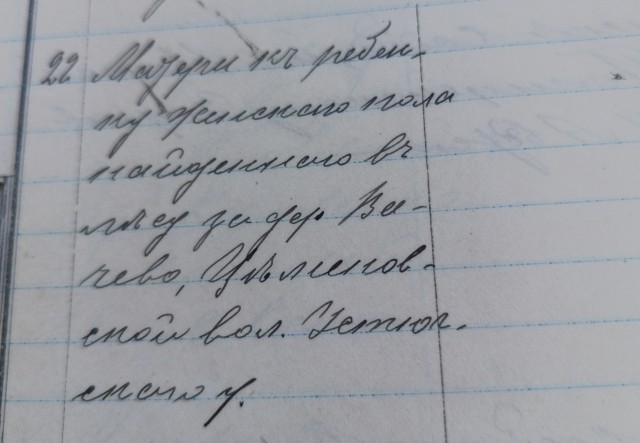 22 Матери къ ребен-
ку женскаго пола
найденнаго въ
лѣсу за дер. Ва-
чево,
ской вол. Устюж-
скаго у.